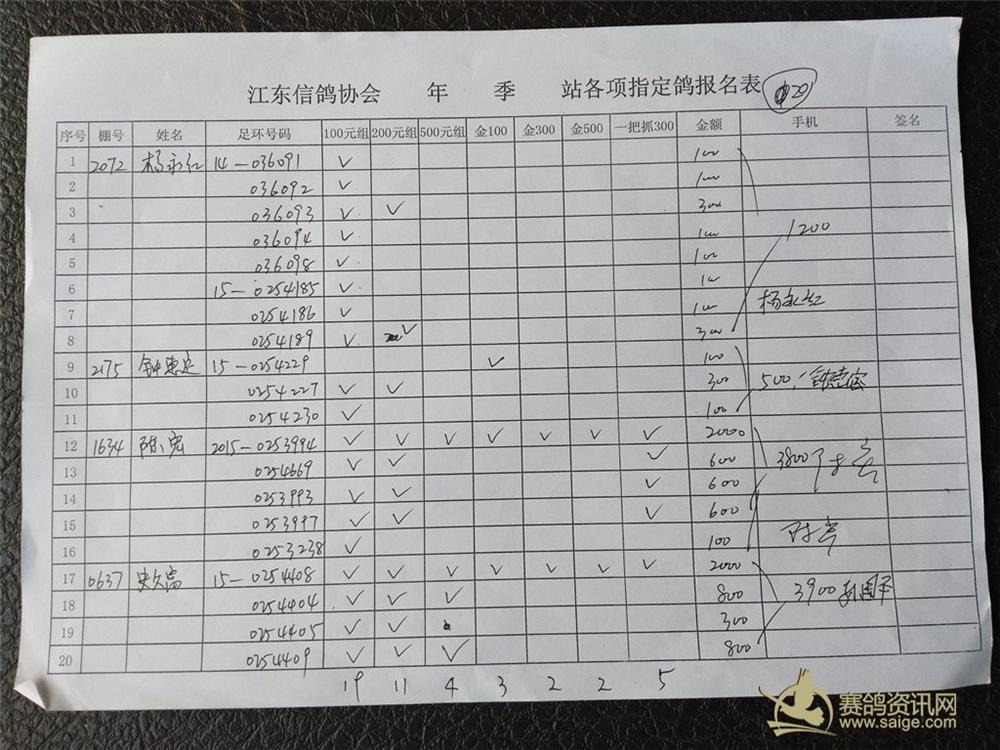 江东信鸽协会 年 季 站各项指定鸽报名表 20
序号 棚号 姓名 足环号码 100元组 200元组 500元组 金100 金300 金500 一把抓300 金额 手机 签名
1 2072 杨永红 14-036091 ✓ 100
2 036092 ✓ 100
3 036093 ✓ ✓ 300
4 036094 ✓ 100 1200
5 036098 ✓ 100
6 15-0254185 ✓ 100
7 0254186 ✓ 100 杨永红
8 0254189 ✓ ✓ 300
9 2175 15-0254229 ✓ 100
10 0254227 ✓ ✓ 300 500
11 0254230 ✓ 100
12 1634 2015-0253994 ✓ ✓ ✓ ✓ ✓ ✓ ✓ 2000
13 0254669 ✓ ✓ ✓ 600 3800
14 0253993 ✓ ✓ ✓ 600
15 0253997 ✓ ✓ ✓ 600
16 0253238 ✓ 100
17 0637 15-0254408 ✓ ✓ ✓ ✓ ✓ ✓ ✓ 2000
18 0254404 ✓ ✓ ✓ 800 3900
19 0254405 ✓ ✓ 300
20 0254409 ✓ ✓ ✓ 800
19 11 4 3 2 2 5
赛鸽资讯网
www.saige.com